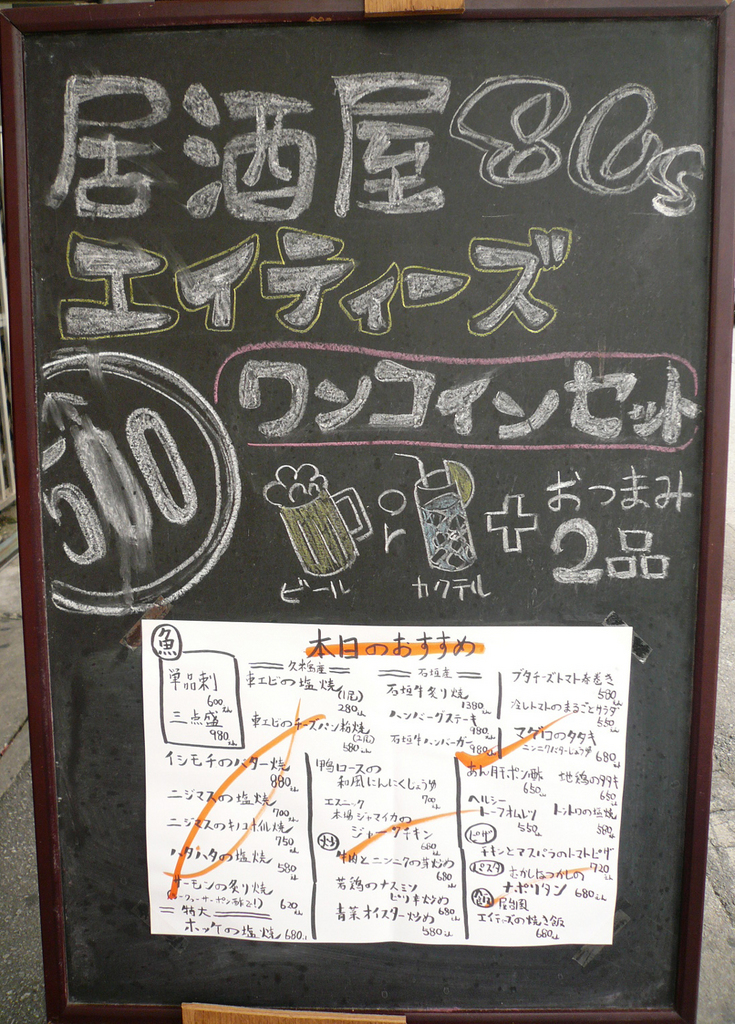 居酒屋80s
エイティーズ
500
ワンコインセット
ビール
or
カクテル
+
おつまみ
2品
本日のおすすめ
魚
単品刺
600
三点盛
980
久米島産
車エビの塩焼
(1尾)
280
車エビのチーズパン粉焼
(2尾)
580
イシモチのバター焼
880
ニジマスの塩焼
700
ニジマスのキノコホイル焼
750
ハタハタの塩焼
580
サーモンの炙り焼
620
特大
ホッケの塩焼 680
鴨ロースの
和風にんにくしょうゆ
700
エスニック
本場ジャマイカの
ジャークチキン
680
炒
牛肉とニンニクの芽炒め
680
若鶏のナスミソ
ピリ辛炒め
680
青菜オイスター炒め
580
石垣産
石垣牛炙り焼
1380
ハンバーグステーキ
980
石垣牛ハンバーガー
980
ブタチーズトマト巻き
580
冷しトマトのまるごとサラダ
550
マグロのタタキ
ニンニクバターしょうゆ
680
あん肝ポン酢
650
地鶏のタタキ
650
ヘルシー
トーフオムレツ
550
トントロの塩焼
580
ピザ
チキンとマスバラのトマトピザ
720
パスタ
むかしなつかしの
ナポリタン
680
飯
居酒風
エイティーズの焼き飯
680